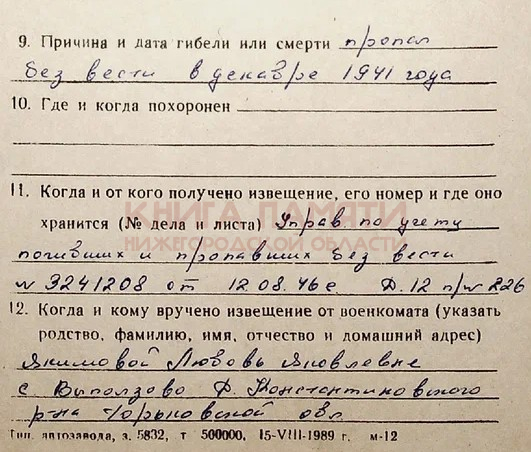 9. Причина и дата гибели или смерти пропал
без вести в декабре 1941 года
10. Где и когда похоронен
11. Когда и от кого получено извещение, его номер и где оно
хранится (№ дела и листа) Управ по учету
КНИГА ПАМЯТИ
НИЖЕГОРОДСКОЙ ОБЛАСТИ
погибших и пропавших без вести
№ 3241208 от 12.08.46г Д.12 п/№ 226
12. Когда и кому вручено извещение от военкомата (указать
родство, фамилию, имя, отчество и домашний адрес)
Якимовой Любовь Яковлевне
с Выползово Д. Константиновского
р-на Горьковской обл
Тип. автозавода, з. 5832, т 500000, 15-VIII-1989 г. м-12